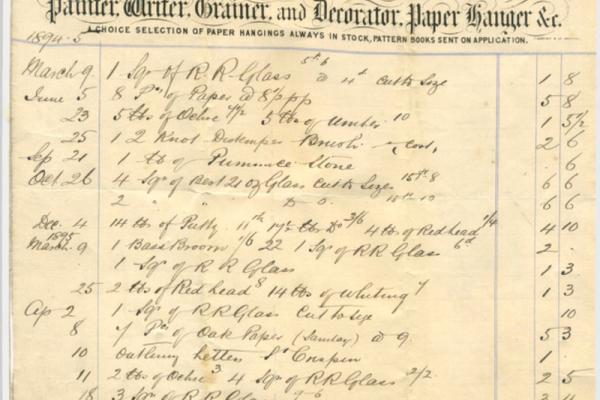 Painter, Writer, Grainer, and Decorator, Paper Hanger &c.
A CHOICE SELECTION OF PAPER HANGINGS ALWAYS IN STOCK, PATTERN BOOKS SENT ON APPLICATION.
1894-5
March 9. 1 Sqr of R R Glass @ 4d Cut to Size 1 8
June 5 8 Pcs of Paper @ 8½ ppp 5 8
23 5 lbs of Ochre 7½ 5 lbs of Umber 10 1 5½
25 1 2 Knot Distemper Brush Cost 2 6
Sep 21 1 lb of Pummice Stone 6
Oct 26 4 Sqrs of Best 21 oz Glass Cut to Sizes 15 x 8 6 6
2 " " Do 15 x 10 6 6
Dec. 4 14 lbs of Putty 4 lbs of Red head 1/4 4 10
1895
March 9 1 Bass Broom 1/6 22 1 Sqr of R R Glass 6d 2 -
1 Sqr of R R Glass 1 3
25 2 lbs of Red head 8 14 lbs of Whiting 7 1 3
Ap 2 1 Sqr of R R Glass Cut to Size 10
8 7 Pcs of Oak Paper (Sunday) @ 9. 5 3
10 Outlining letters St Crispin 1
11 2 lbs of Ochre 3 4 Sqrs of R R Glass 2/2 2 5
18 3 Sqrs of R R Glass 3 4